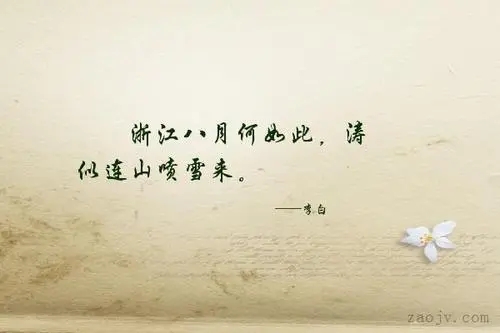 浙江八月何如此，涛
似连山喷雪来。
——李白
zaojv.com